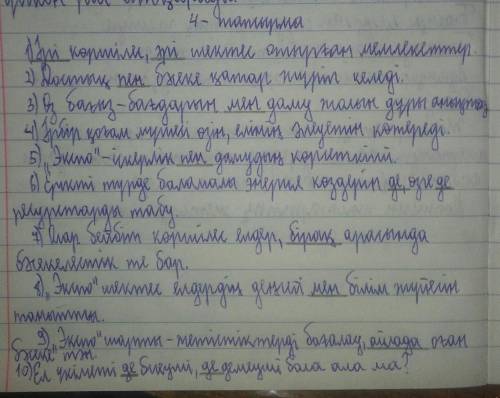 4-тапсырма
1) Әрі көршілес, әрі шектес отырған мемлекеттер.
2) Достық пен бәсеке қатар жүріп келеді.
3) Өз бағыт-бағдарын мен даму жолын дұрыс анықтау
4) Әрбір қоғам мүшесі өзін, елінің әлеуетін көтереді.
5) „Экспо"-іскерлік пен дамудың көрсеткіші.
6) Ерікті түрде баламалы энергия көздерін де, өзге де
ресурстарды табу.
7) Олар бейбіт көршілес елдер, бірақ арасында
бәсекелестік те бар.
8) „Экспо" шектес елдердің деңгей мен білім жүйесін
танытты.
9) „Экспо" шарты-жетістіктерді бағалау, ойлада оған
бәсеке тән.
10) Ел үкіметі де басшы, де демеуші бола ала ма?